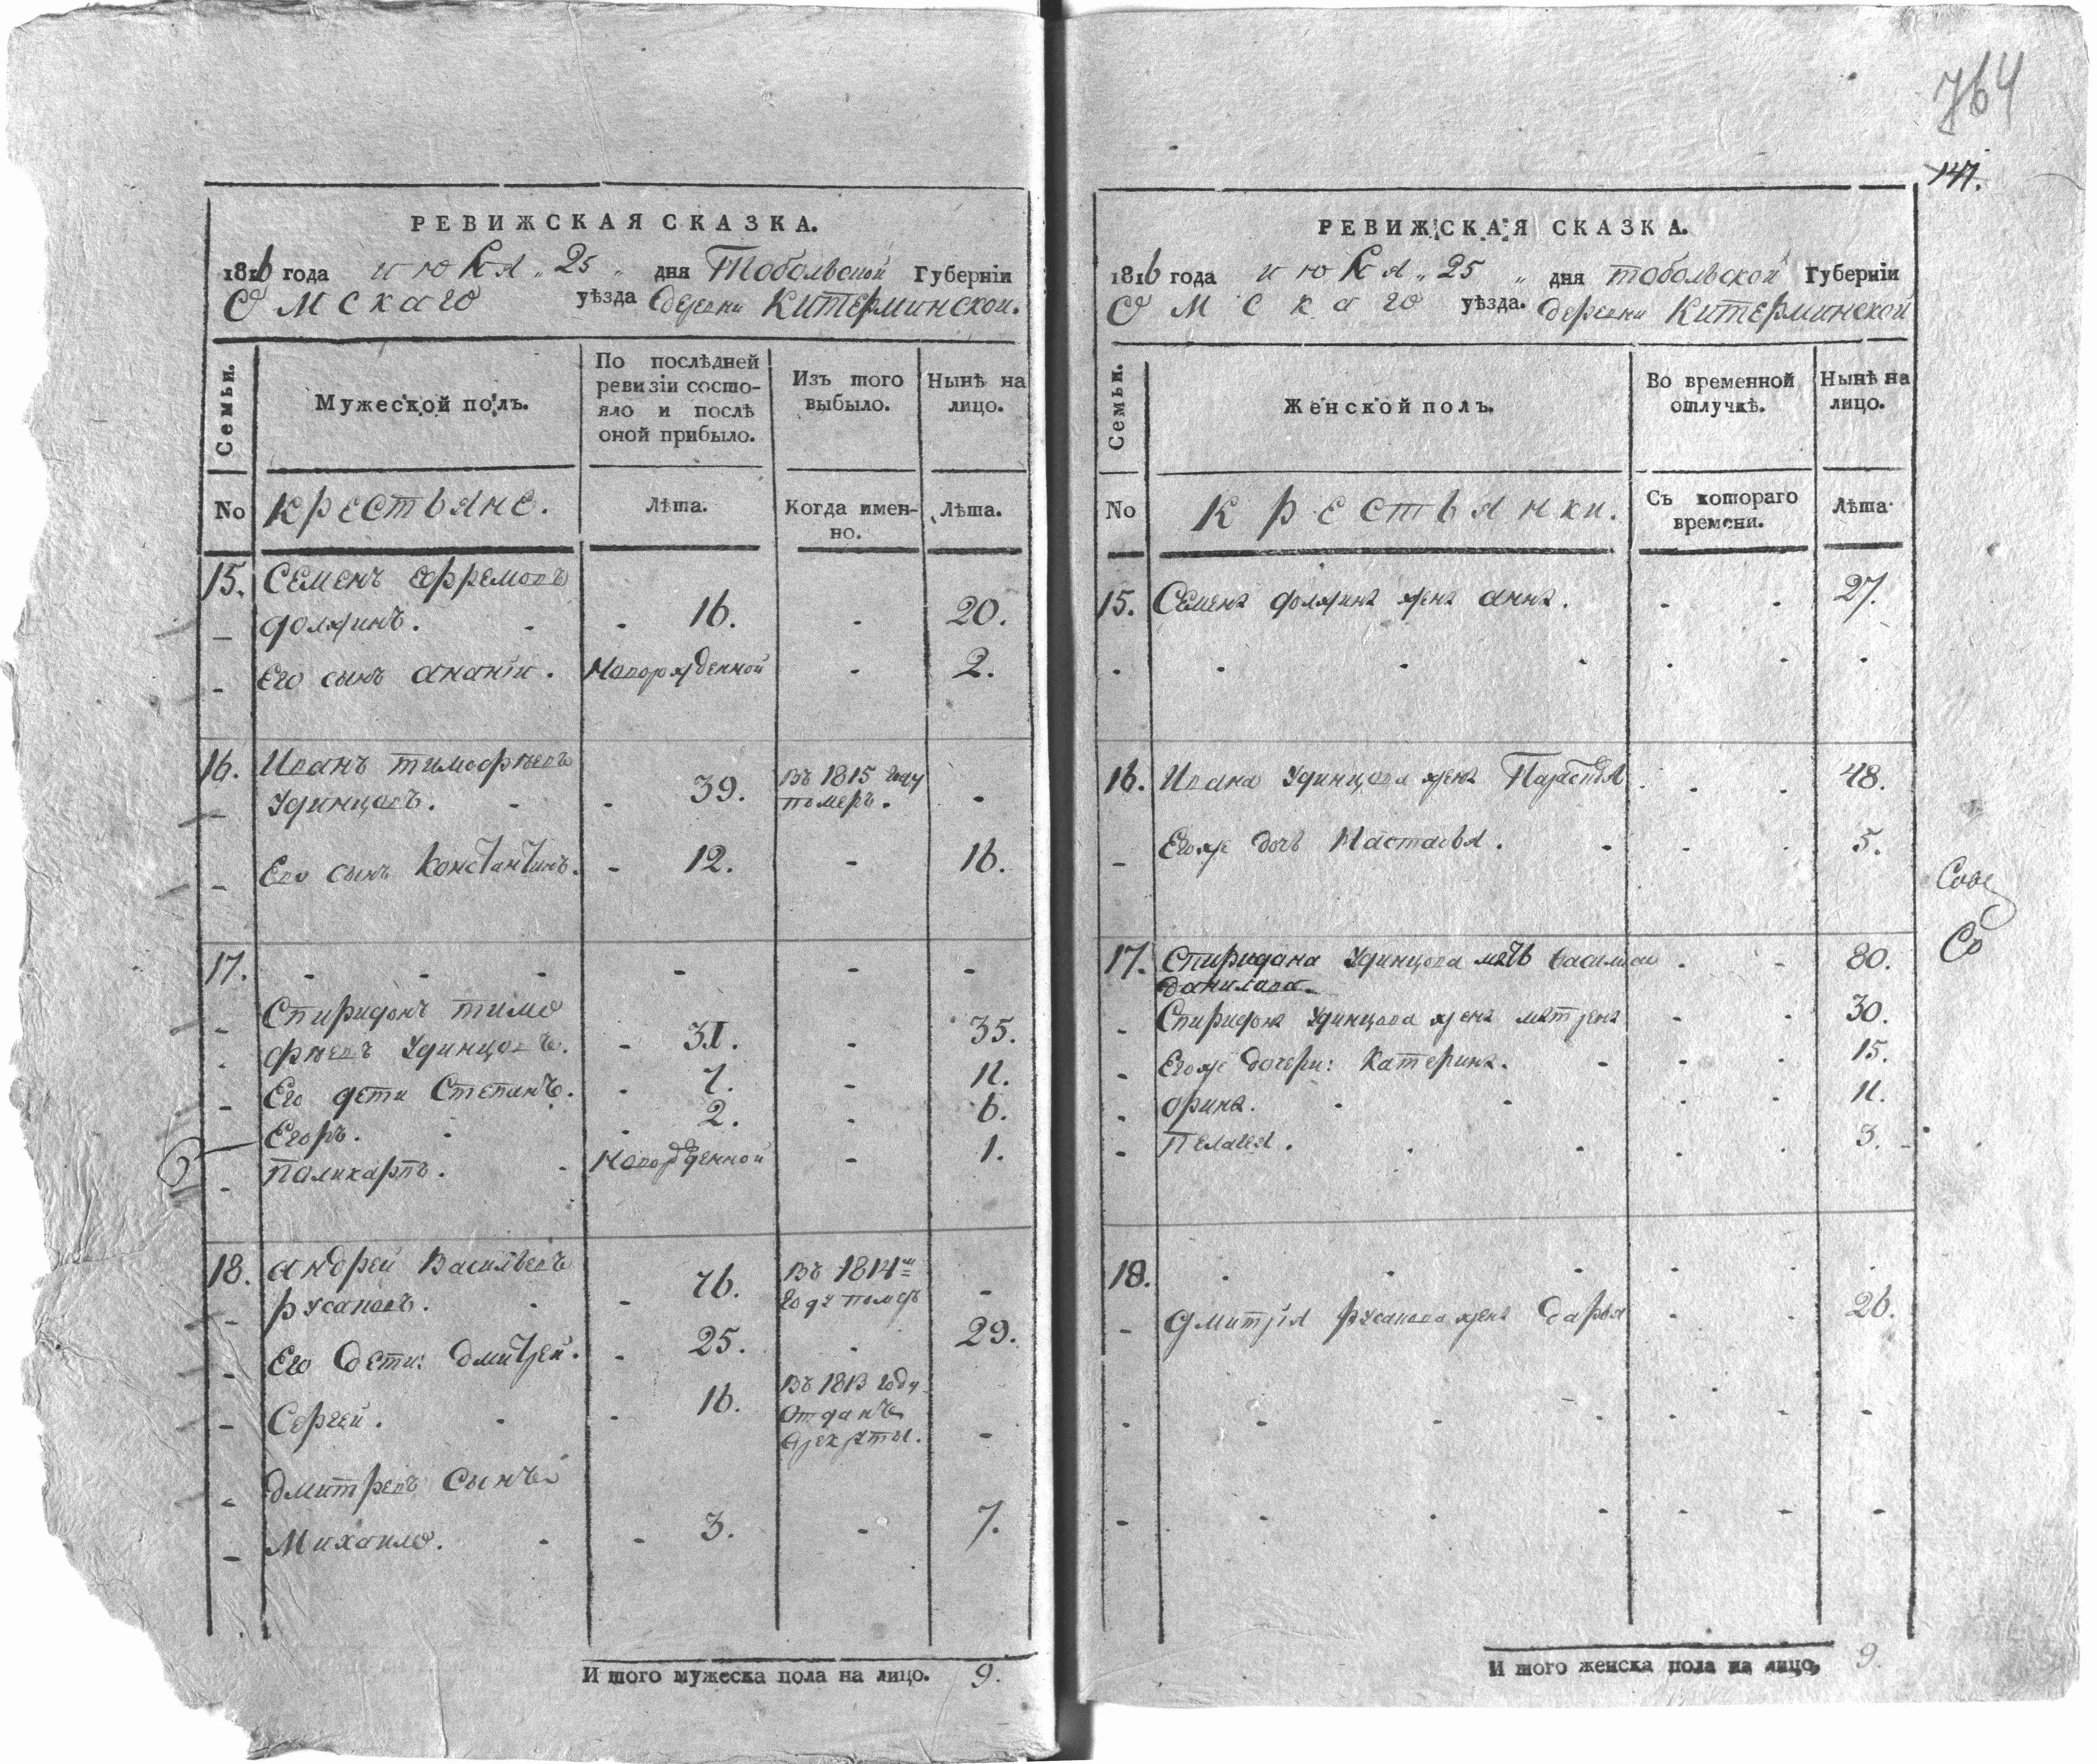 764
147.
РЕВИЖСКАЯ СКАЗКА.
1816 года июня „ 25 „ дня Тобольской Губерніи
Омскаго уѣзда деревни Китерминской.
Семьи.
Мужеской полъ.
По послѣдней
ревизіи состо-
яло и послѣ
оной прибыло.
Изъ того
выбыло.
Нынѣ на
лицо.
No крестьяне. Лѣта. Когда имен-
но. Лѣта.
15. Семенъ Ефремовъ
Должинъ. 16. 20.
Его сынъ ананіи. Новорожденной 2.
16. Иванъ тимофѣевъ
Удинцовъ. 39. Въ 1815 году
померъ.
Его сынъ Константинъ. 12. 16.
17.
Спиридонъ тимо
фѣевъ Удинцовъ. 31. 35.
Его дети Степанъ. 7. 11.
Егоръ. 2. 6.
Поликарпъ. Новорожденной 1.
18. андрей Васильевъ
русановъ. 76. Въ 1814м
году померъ
Его дети: дмитрей. 25. 29.
Сергей. 16. Въ 1813 году
Отданъ
врекруты.
дмитревъ сынъ
Михаило. 3. 7.
И того мужеска пола на лицо. 9.
РЕВИЖСКАЯ СКАЗКА.
1816 года июня „ 25 „ дня тобольской Губерніи
Омскаго уѣзда. деревни Китерминской
Семьи.
Женской полъ.
Во временной
отлучкѣ.
Нынѣ на
лицо.
No крестьянки. Съ котораго
времени. Лѣта
15. Семена должина жена анна. 27.
16. Ивана Удинцова жена Парасковья 48.
Егоже дочь Настасья. 5.
17. Спиридона Удинцова мать василиса 80.
данилова
Спиридона Удинцова жена матрена 30.
Егоже дочери: Катерина. 15.
орина. 11.
Пелагея. 3.
18.
дмитрія русанова жена дарья 26.
И того женска пола на лицо, 9.